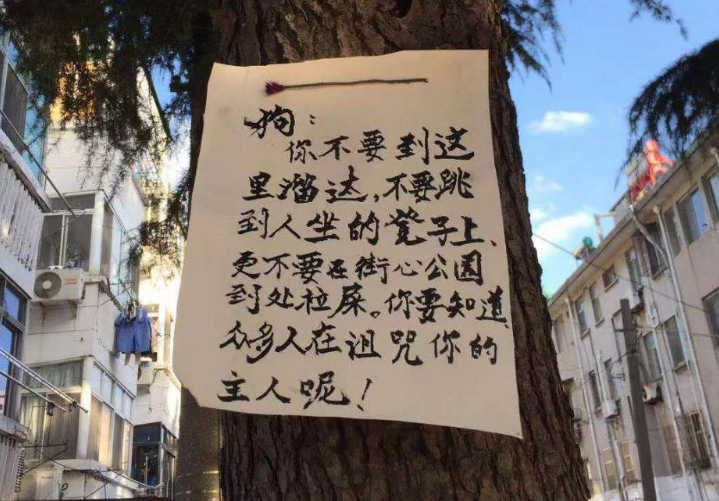 狗：
你不要到这
里溜达，不要跳
到人坐的凳子上、
更不要在街心公园
到处拉屎。你要知道，
众多人在诅咒你的
主人呢！